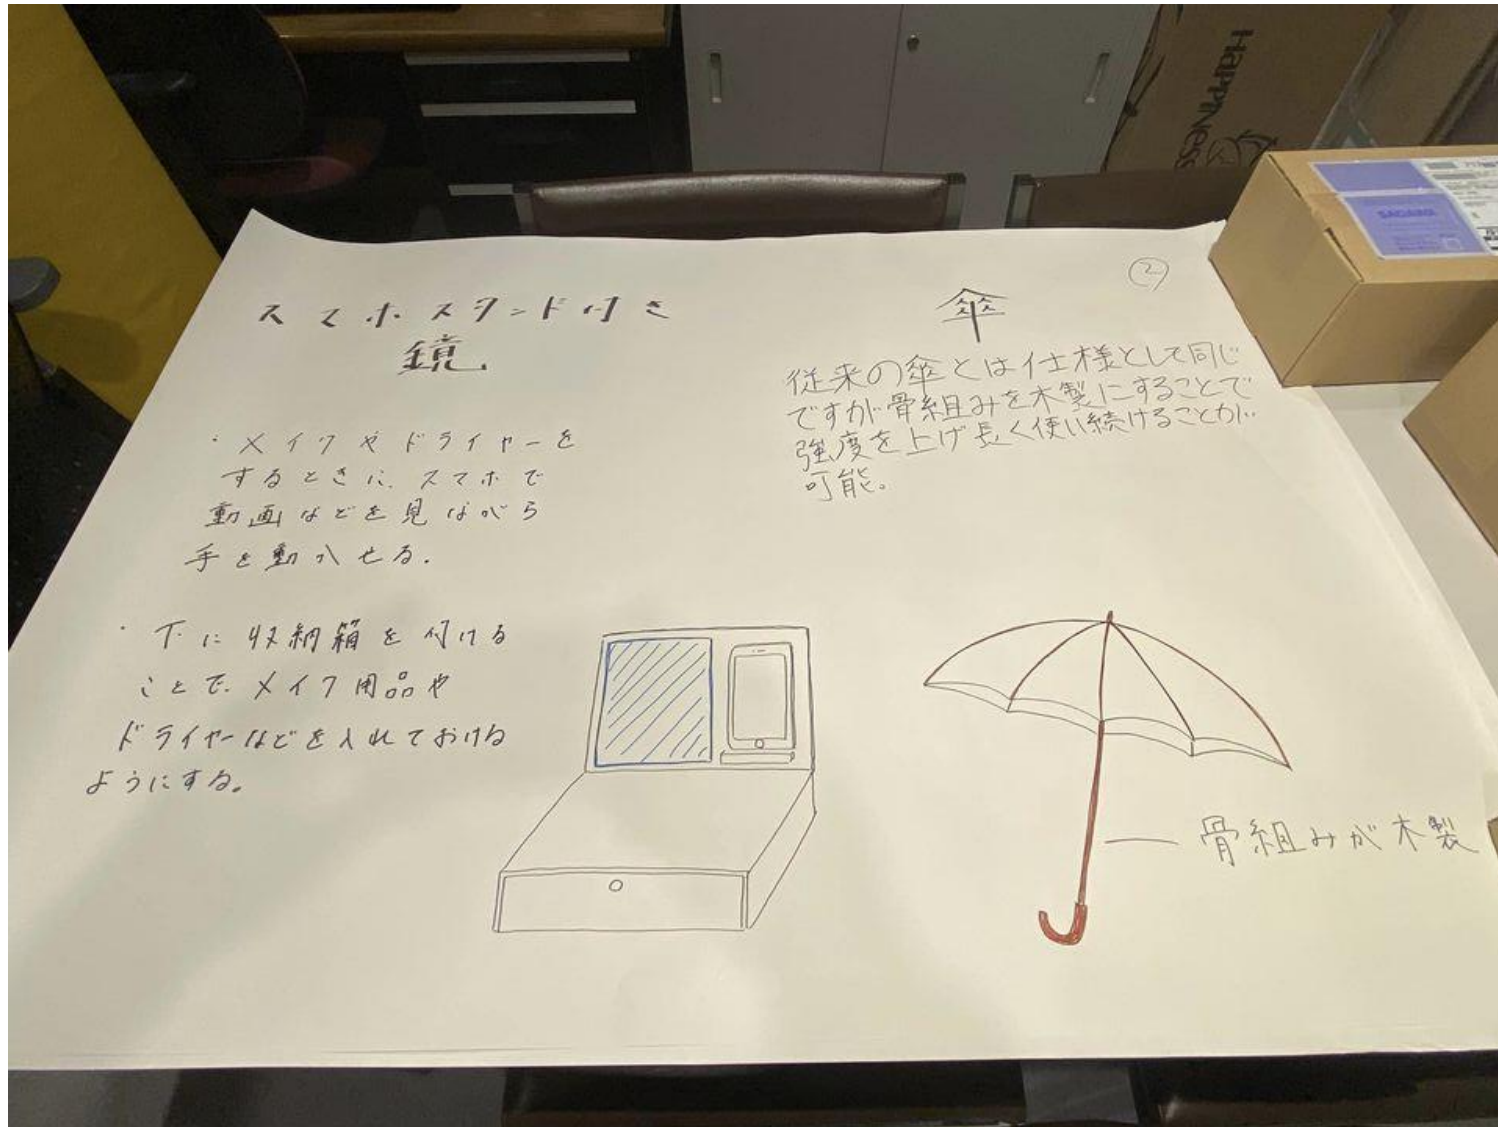 スマホスタンド付き
鏡
・メイクやドライヤーを
するときに、スマホで
動画などを見ながら
手を動かせる.
・下に収納箱を付ける
ことで、メイク用品や
ドライヤーなどを入れておける
ようにする。
②
傘
従来の傘とは仕様として同じ
ですが骨組みを木製にすることで
強度を上げ長く使い続けることが
可能。
骨組みが木製
HAPPINESS
SAGAWA